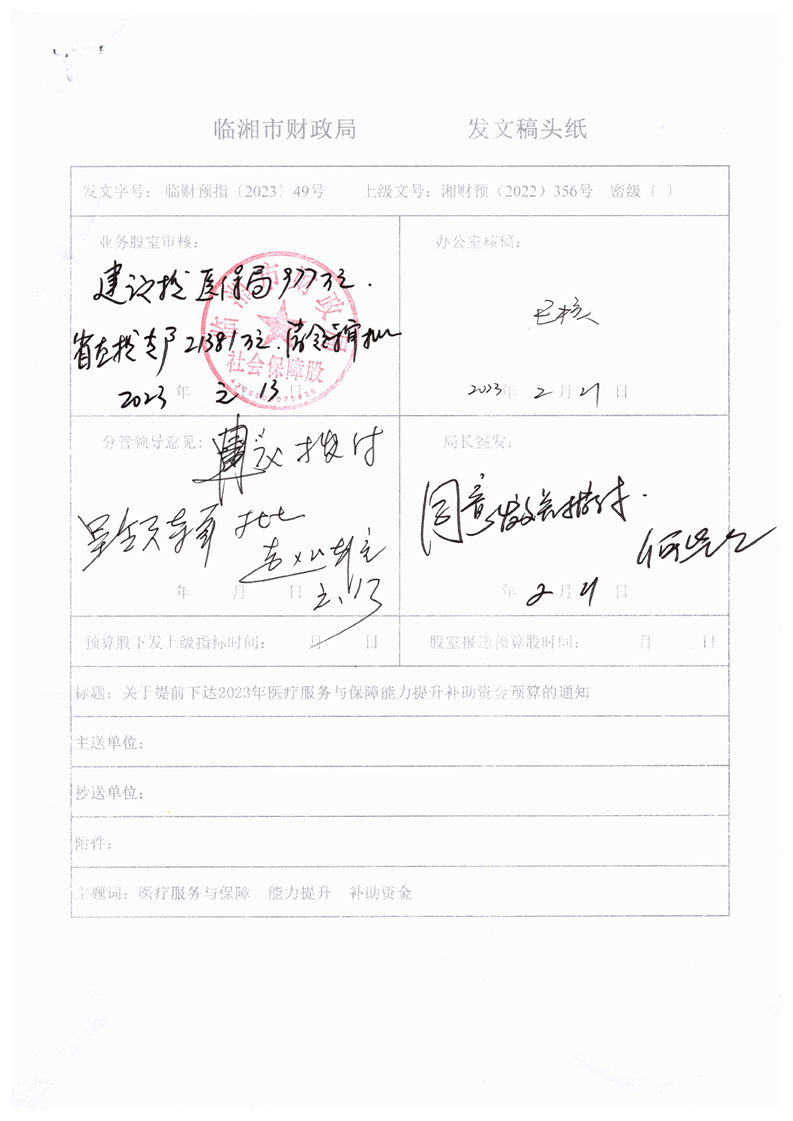 临湘市财政局 发文稿头纸
发文字号：临财预指〔2023〕49号 上级文号：湘财预（2022）356号 密级〔 〕
业务股室审核：
建议拨医保局977万元．
省直拨专户21381万元．请领导审批
临湘市财政局
社会保障股
2023年 2 13日
办公室核稿：
已核
2023年2月21日
分管领导意见：
建议拨付
呈何局长审批
年 月 日
局长签发：
同意发文拨付．
年2月21日
预算股下发上级指标时间： 月 日
股室报送预算股时间： 月 日
标题：关于提前下达2023年医疗服务与保障能力提升补助资金预算的通知
主送单位：
抄送单位：
附件：
主题词：医疗服务与保障 能力提升 补助资金